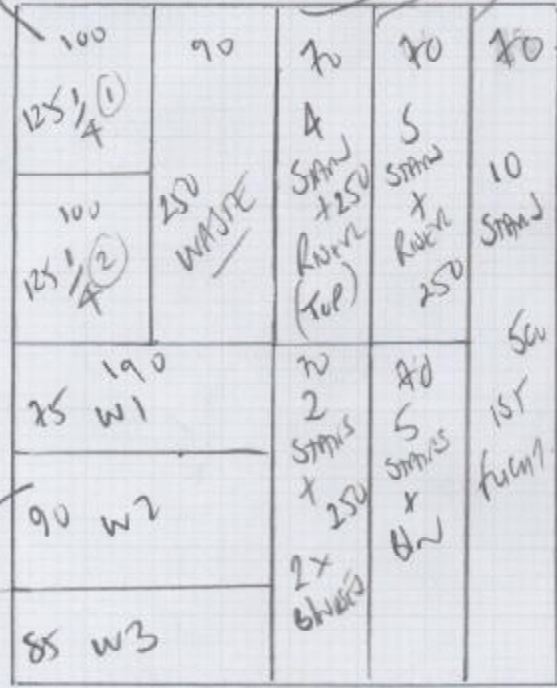 100
125 1/4 ①
100
125 1/4 ②
90
250
WASTE
70
4
STAND
+250
RISER
(TOP)
70
5
STAND
+
RISER
250
70
10
STAND
500
1ST
FLIGHT
190
75 W1
90 W2
85 W3
70
2
STAIRS
+
250
2x
70
5
STAIRS
+